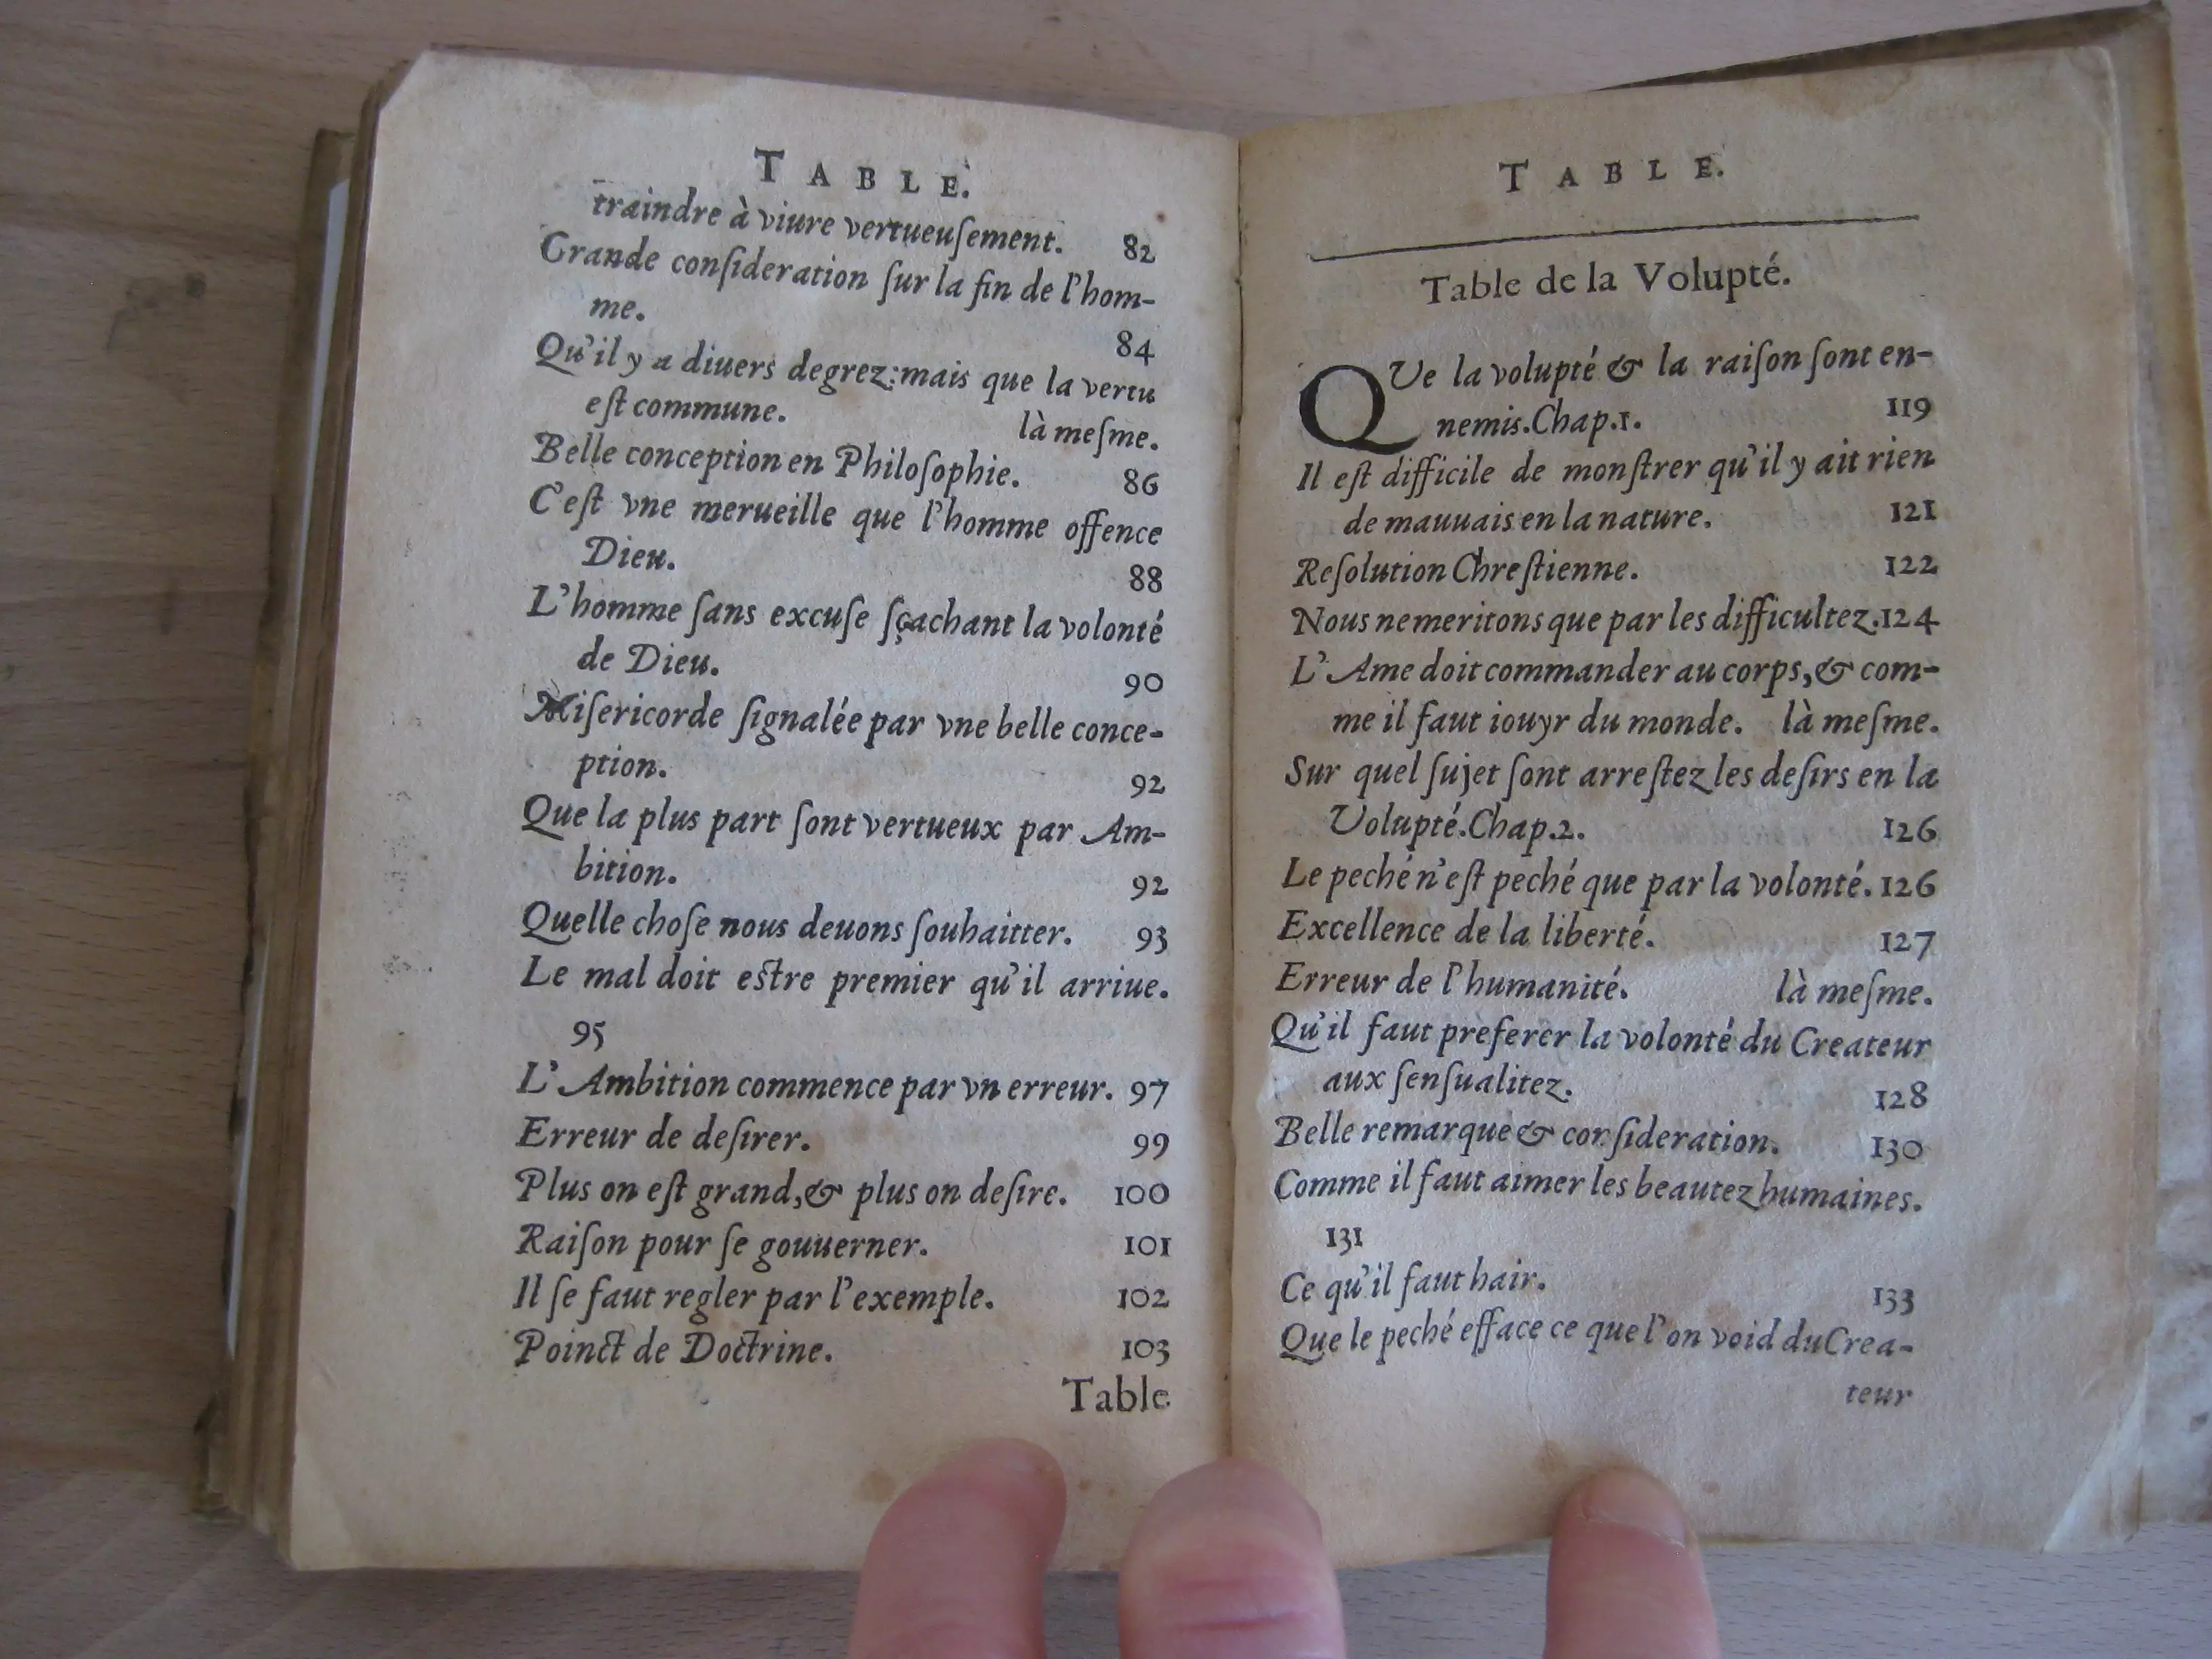 TABLE.
traindre à viure vertueuſement. 82
Grande conſideration ſur la fin de l'hom-
me. 84
Qu'il y a diuers degrez: mais que la vertu
eſt commune. là meſme.
Belle conception en Philoſophie. 86
C'eſt vne merueille que l'homme offence
Dieu. 88
L'homme ſans excuſe ſçachant la volonté
de Dieu. 90
Miſericorde ſignalée par vne belle conce-
ption. 92
Que la plus part ſont vertueux par Am-
bition. 92
Quelle choſe nous deuons ſouhaitter. 93
Le mal doit eſtre premier qu'il arriue.
95
L'Ambition commence par vn erreur. 97
Erreur de deſirer. 99
Plus on eſt grand, & plus on deſire. 100
Raiſon pour ſe gouuerner. 101
Il ſe faut regler par l'exemple. 102
Poinct de Doctrine. 103
Table
TABLE.
Table de la Volupté.
QVe la volupté & la raiſon ſont en-
nemis. Chap. 1. 119
Il eſt difficile de monſtrer qu'il y ait rien
de mauuais en la nature. 121
Reſolution Chreſtienne. 122
Nous ne meritons que par les difficultez. 124
L'Ame doit commander au corps, & com-
me il faut iouyr du monde. là meſme.
Sur quel ſujet ſont arreſtez les deſirs en la
Volupté. Chap. 2. 126
Le peché n'eſt peché que par la volonté. 126
Excellence de la liberté. 127
Erreur de l'humanité. là meſme.
Qu'il faut preferer la volonté du Createur
aux ſenſualitez. 128
Belle remarque & conſideration. 130
Comme il faut aimer les beautez humaines.
131
Ce qu'il faut hair. 133
Que le peché efface ce que l'on void du Crea-
teur